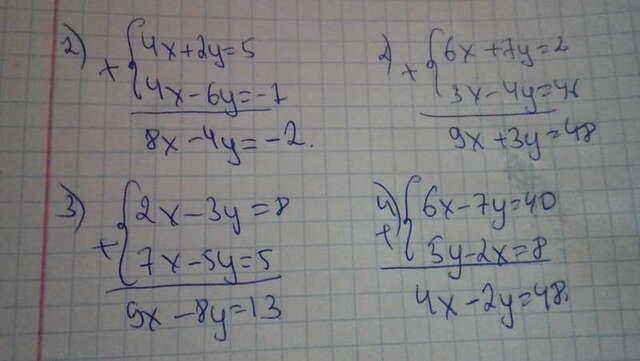 2) + { 4x+2y=5
4x-6y=-7
8x-4y=-2.
+ { 6x+7y=2
3x-4y=46
9x+3y=48
3) + { 2x-3y=8
7x-5y=5
9x-8y=13
4) + { 6x-7y=40
5y-2x=8
4x-2y=48.